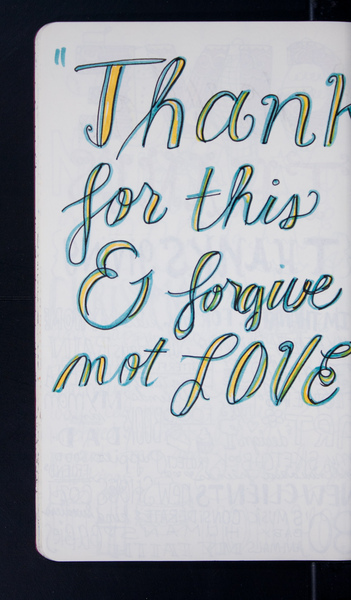 "Thank
for this
& forgive
not LOVE